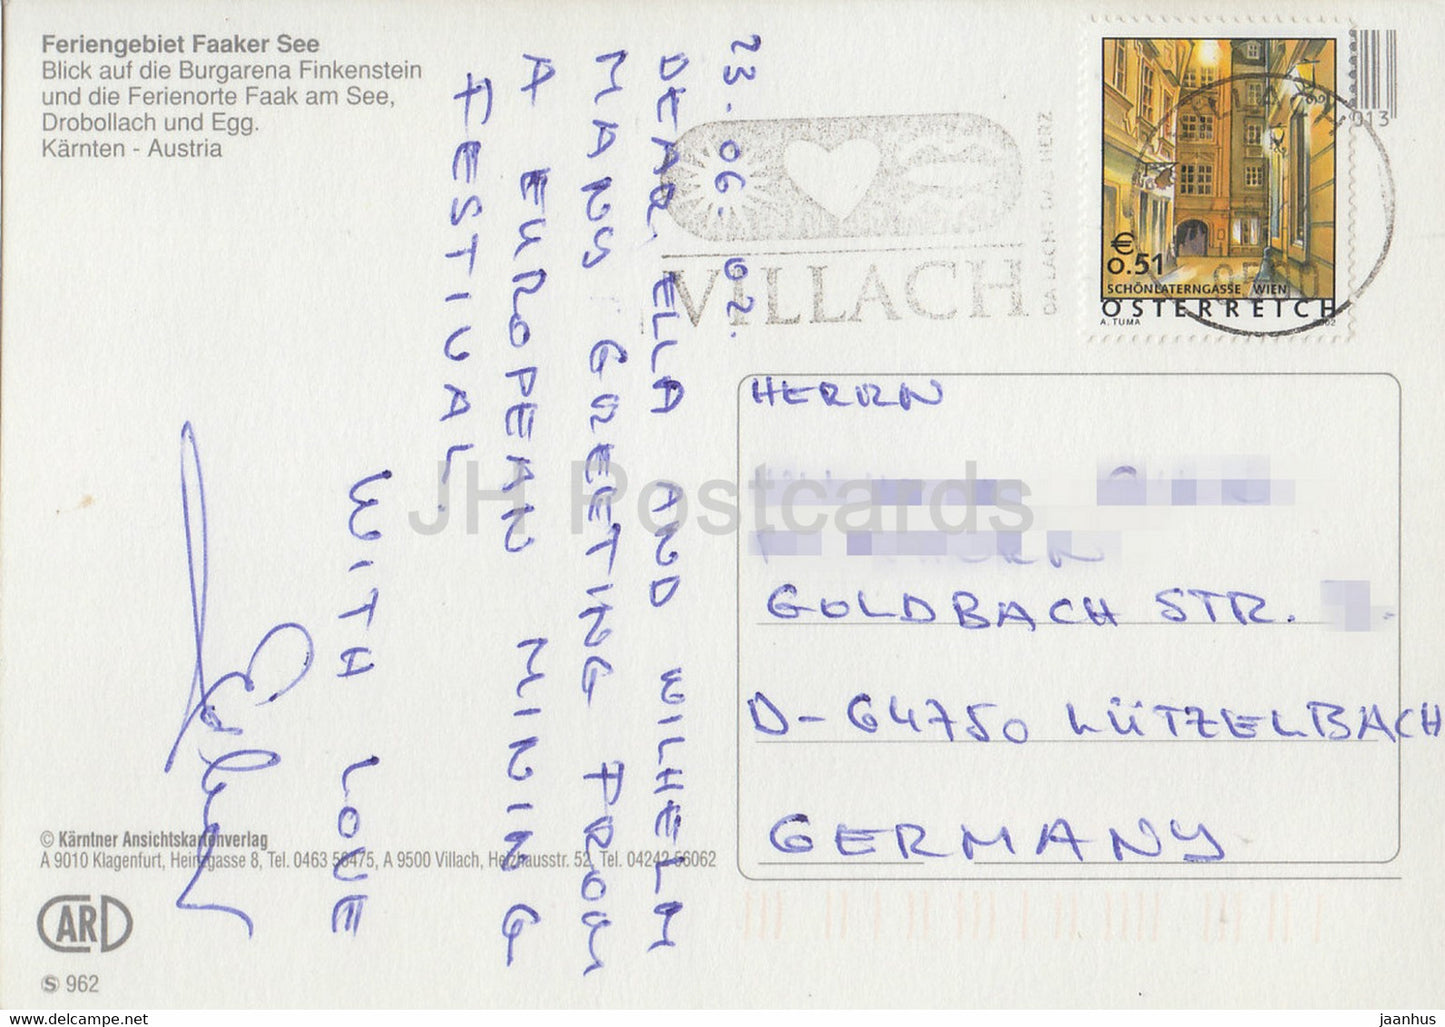 Feriengebiet Faaker See
Blick auf die Burgarena Finkenstein
und die Ferienorte Faak am See,
Drobollach und Egg.
Kärnten - Austria
23.06.02.
DEAR ELLA AND WILHELM
MANY GREETING FROM
A EUROPEAN MINING
FESTIVAL.
WITH LOVE
VILLACH
€
0.51
SCHÖNLATERNGASSE WIEN
ÖSTERREICH
A. TUMA 2002
013
HERRN
GOLDBACH STR.
D-64750 LÜTZELBACH
GERMANY
© Kärntner Ansichtskartenverlag
A 9010 Klagenfurt, Heinzgasse 8, Tel. 0463 56475, A 9500 Villach, Tel. 04242 56062
CARD
S 962
JH Postcards
www.delcampe.net
jaanhus